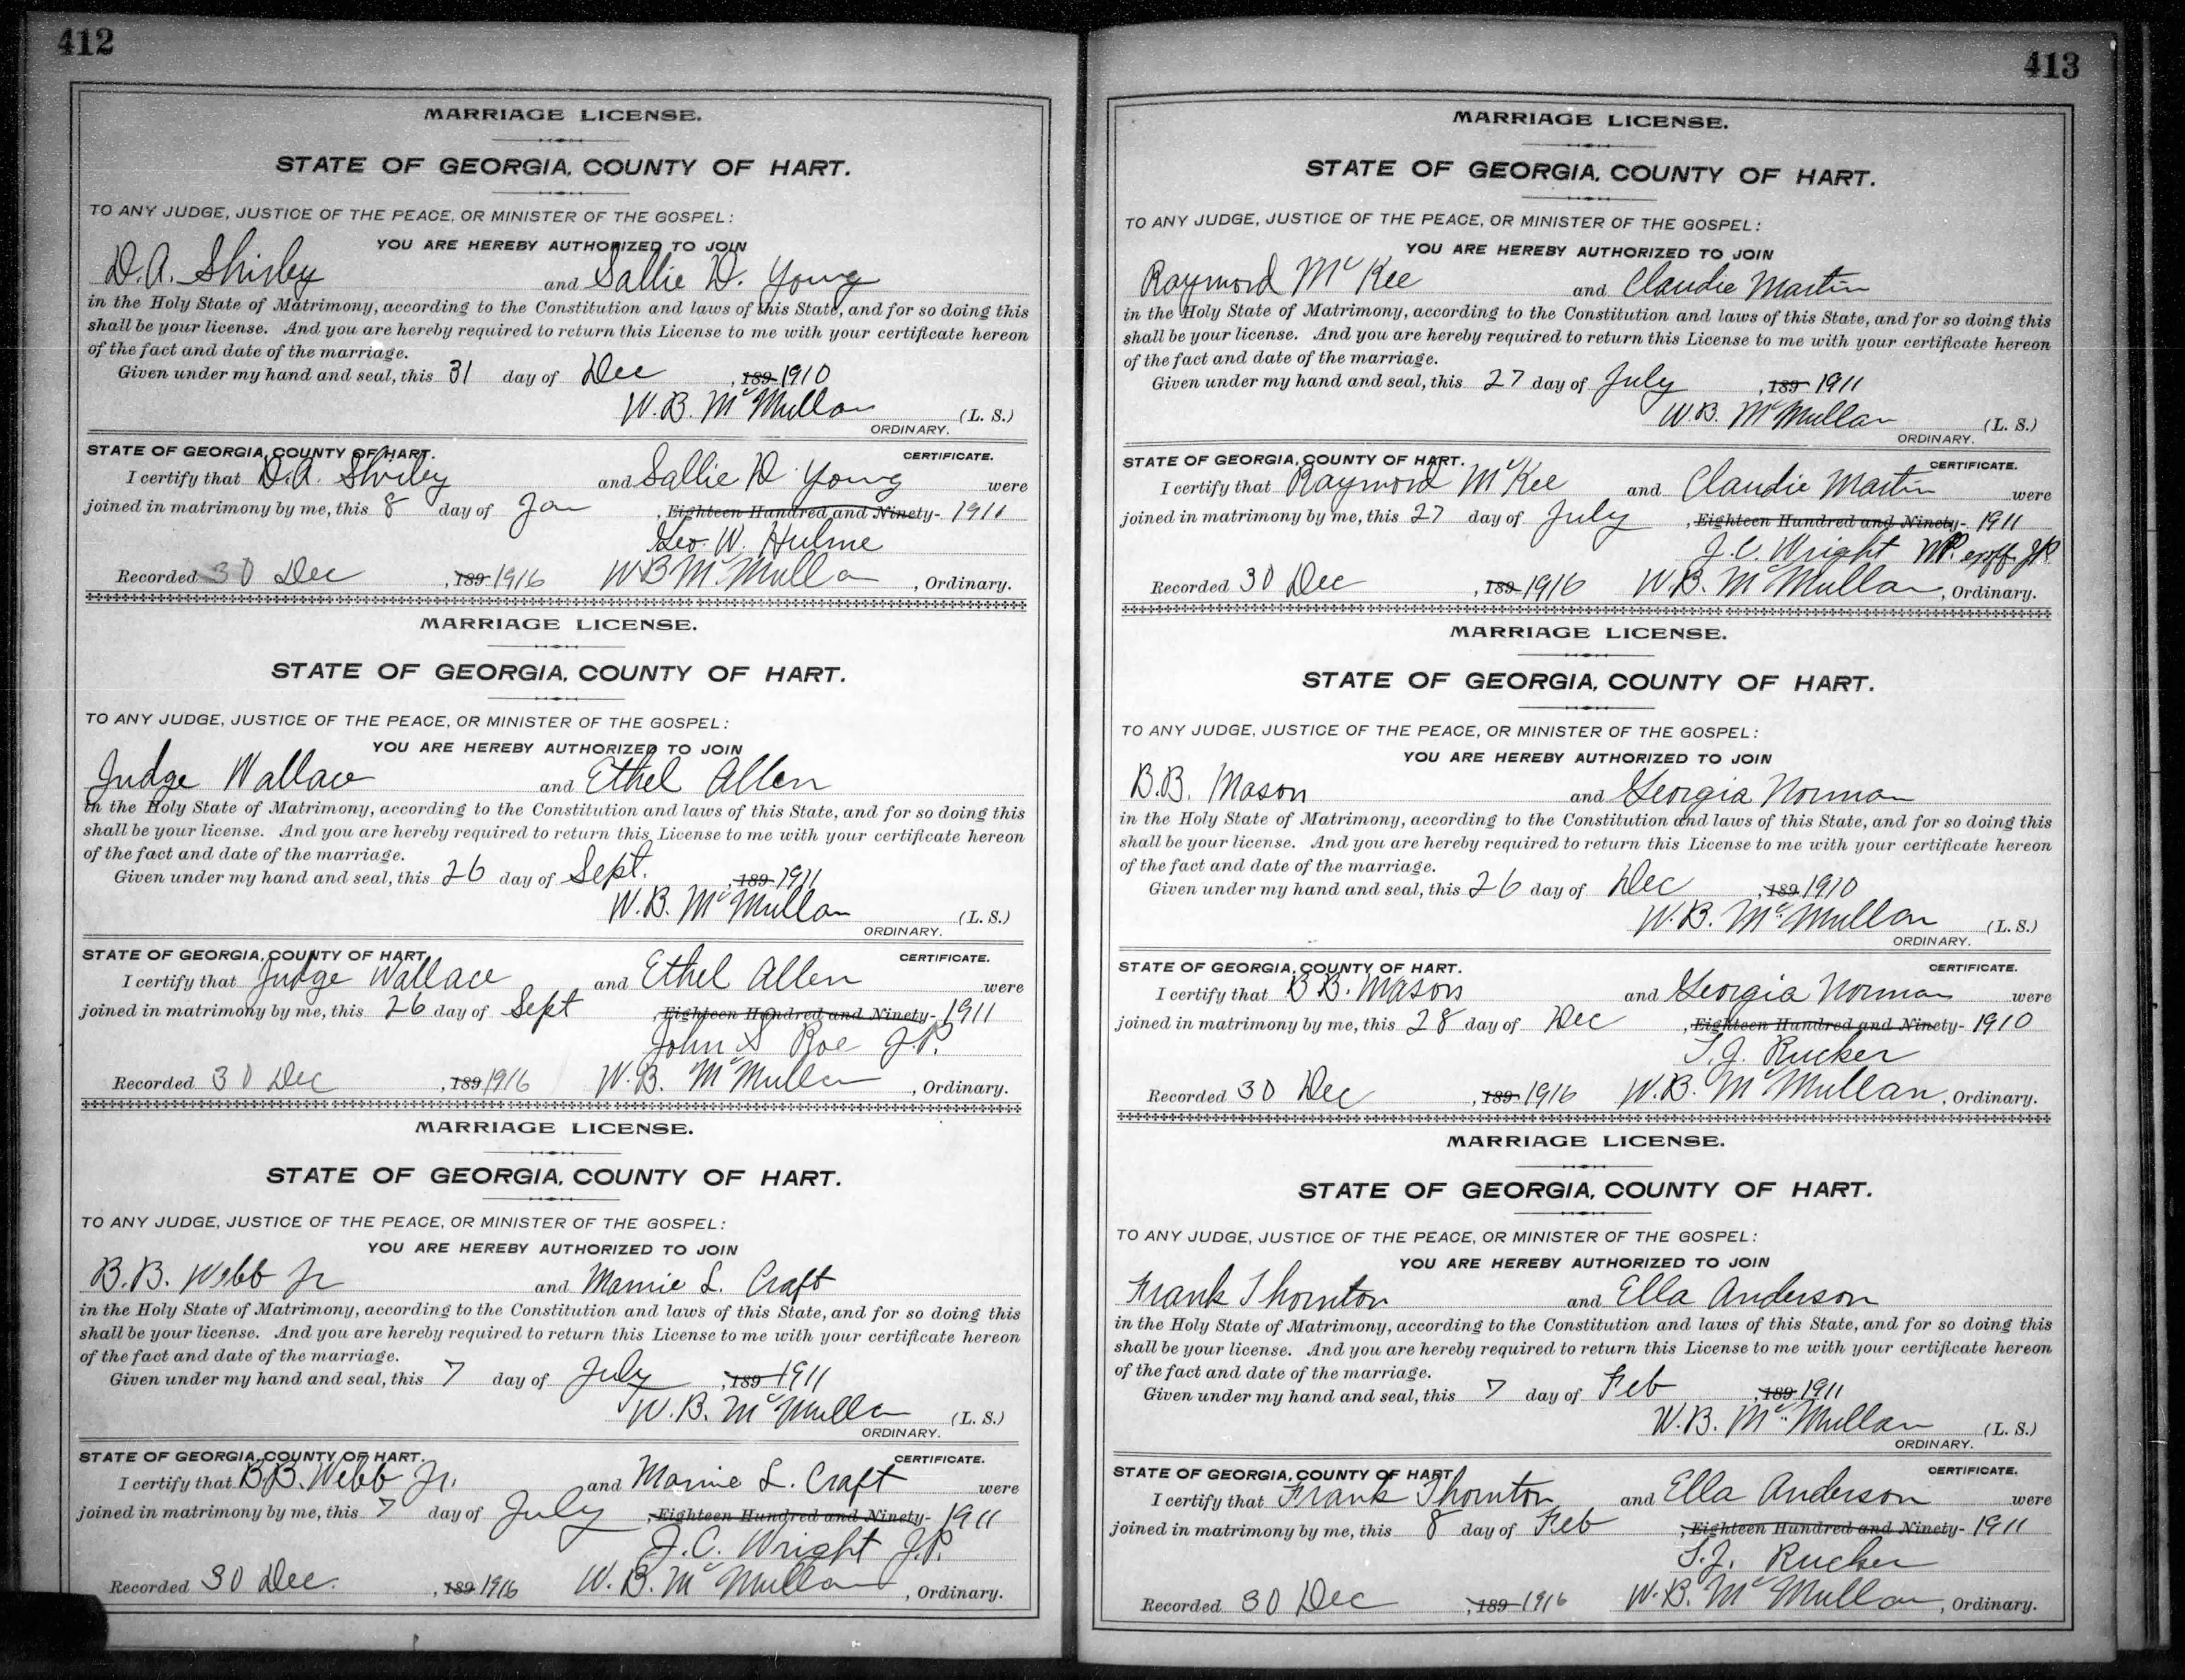 412
MARRIAGE LICENSE.
STATE OF GEORGIA, COUNTY OF HART.
TO ANY JUDGE, JUSTICE OF THE PEACE, OR MINISTER OF THE GOSPEL:
YOU ARE HEREBY AUTHORIZED TO JOIN
D.A. Shirley and Sallie D. Young
in the Holy State of Matrimony, according to the Constitution and laws of this State, and for so doing this
shall be your license. And you are hereby required to return this License to me with your certificate hereon
of the fact and date of the marriage.
Given under my hand and seal, this 31 day of Dec , 189 1910
W.B. McMullan (L. S.)
ORDINARY.
STATE OF GEORGIA, COUNTY OF HART. CERTIFICATE.
I certify that D.A. Shirley and Sallie D. Young were
joined in matrimony by me, this 8 day of Jan , Eighteen Hundred and Ninety- 1911
Geo. W. Hulme
Recorded 30 Dec , 189 1916 W B McMullan , Ordinary.
MARRIAGE LICENSE.
STATE OF GEORGIA, COUNTY OF HART.
TO ANY JUDGE, JUSTICE OF THE PEACE, OR MINISTER OF THE GOSPEL:
YOU ARE HEREBY AUTHORIZED TO JOIN
Judge Wallace and Ethel Allen
in the Holy State of Matrimony, according to the Constitution and laws of this State, and for so doing this
shall be your license. And you are hereby required to return this License to me with your certificate hereon
of the fact and date of the marriage.
Given under my hand and seal, this 26 day of Sept. , 189 1911
W.B. McMullan (L. S.)
ORDINARY.
STATE OF GEORGIA, COUNTY OF HART. CERTIFICATE.
I certify that Judge Wallace and Ethel Allen were
joined in matrimony by me, this 26 day of Sept , Eighteen Hundred and Ninety- 1911
John S Roe J.P.
Recorded 30 Dec , 189 1916 W.B. McMullan , Ordinary.
MARRIAGE LICENSE.
STATE OF GEORGIA, COUNTY OF HART.
TO ANY JUDGE, JUSTICE OF THE PEACE, OR MINISTER OF THE GOSPEL:
YOU ARE HEREBY AUTHORIZED TO JOIN
B.B. Webb Jr and Mamie L. Craft
in the Holy State of Matrimony, according to the Constitution and laws of this State, and for so doing this
shall be your license. And you are hereby required to return this License to me with your certificate hereon
of the fact and date of the marriage.
Given under my hand and seal, this 7 day of July , 189 1911
W.B. McMullan (L. S.)
ORDINARY.
STATE OF GEORGIA, COUNTY OF HART. CERTIFICATE.
I certify that B.B. Webb Jr. and Mamie L. Craft were
joined in matrimony by me, this 7 day of July , Eighteen Hundred and Ninety- 1911
J.C. Wright J.P.
Recorded 30 Dec. , 189 1916 W.B. McMullan , Ordinary.
413
MARRIAGE LICENSE.
STATE OF GEORGIA, COUNTY OF HART.
TO ANY JUDGE, JUSTICE OF THE PEACE, OR MINISTER OF THE GOSPEL:
YOU ARE HEREBY AUTHORIZED TO JOIN
Raymond McKee and Claudie Martin
in the Holy State of Matrimony, according to the Constitution and laws of this State, and for so doing this
shall be your license. And you are hereby required to return this License to me with your certificate hereon
of the fact and date of the marriage.
Given under my hand and seal, this 27 day of July , 189 1911
W.B. McMullan (L. S.)
ORDINARY.
STATE OF GEORGIA, COUNTY OF HART. CERTIFICATE.
I certify that Raymond McKee and Claudie Martin were
joined in matrimony by me, this 27 day of July , Eighteen Hundred and Ninety- 1911
J.C. Wright NP. exoff JP
Recorded 30 Dec , 189 1916 W.B. McMullan , Ordinary.
MARRIAGE LICENSE.
STATE OF GEORGIA, COUNTY OF HART.
TO ANY JUDGE, JUSTICE OF THE PEACE, OR MINISTER OF THE GOSPEL:
YOU ARE HEREBY AUTHORIZED TO JOIN
B.B. Mason and Georgia Norman
in the Holy State of Matrimony, according to the Constitution and laws of this State, and for so doing this
shall be your license. And you are hereby required to return this License to me with your certificate hereon
of the fact and date of the marriage.
Given under my hand and seal, this 26 day of Dec , 189 1910
W.B. McMullan (L. S.)
ORDINARY.
STATE OF GEORGIA, COUNTY OF HART. CERTIFICATE.
I certify that B B. Mason and Georgia Norman were
joined in matrimony by me, this 28 day of Dec , Eighteen Hundred and Ninety- 1910
T.J. Rucker
Recorded 30 Dec , 189 1916 W.B. McMullan , Ordinary.
MARRIAGE LICENSE.
STATE OF GEORGIA, COUNTY OF HART.
TO ANY JUDGE, JUSTICE OF THE PEACE, OR MINISTER OF THE GOSPEL:
YOU ARE HEREBY AUTHORIZED TO JOIN
Frank Thornton and Ella Anderson
in the Holy State of Matrimony, according to the Constitution and laws of this State, and for so doing this
shall be your license. And you are hereby required to return this License to me with your certificate hereon
of the fact and date of the marriage.
Given under my hand and seal, this 7 day of Feb , 189 1911
W.B. McMullan (L. S.)
ORDINARY.
STATE OF GEORGIA, COUNTY OF HART. CERTIFICATE.
I certify that Frank Thornton and Ella Anderson were
joined in matrimony by me, this 8 day of Feb , Eighteen Hundred and Ninety- 1911
T.J. Rucker
Recorded 30 Dec , 189 1916 W.B. McMullan , Ordinary.